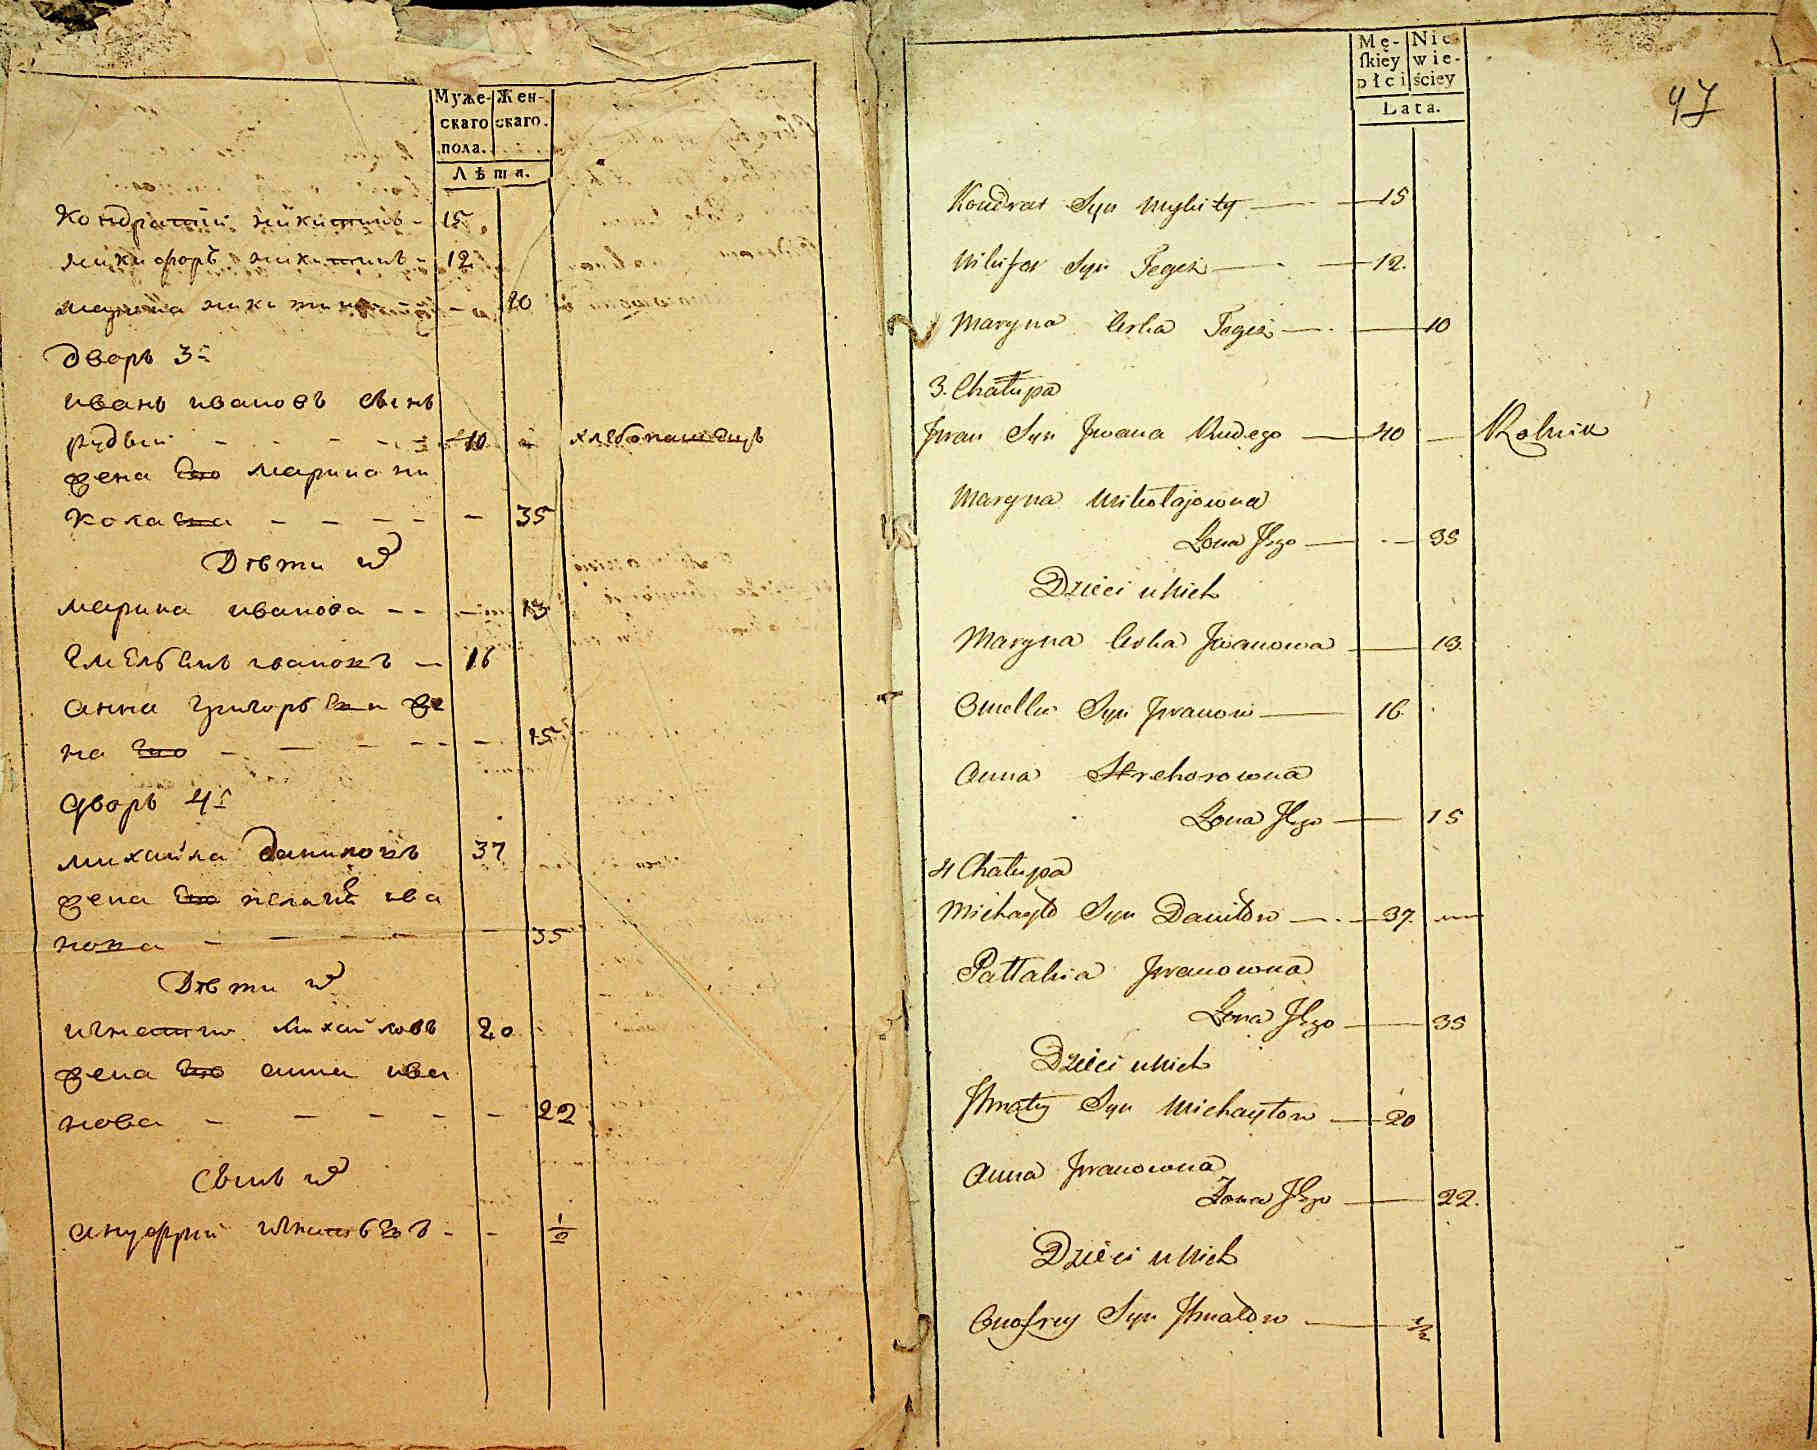 Муже-
скаго
пола.
Жен-
скаго.
Лѣта.
Кондратій никитинъ - 15
никифоръ никитинъ - 12
марина никитина - 10
дворъ 3й
иванъ ивановъ сынъ
рудый - - - - 40 - хлебопашецъ
жена его марина ни
колаева - - - - - 35
Дѣти их
марина иванова - - - 13
Емельянъ ивановъ - 16
анна григорьева же
на его - - - - - - 15
дворъ 4й
михайла даниловъ 37
жена его пелагея ива
нова - - - - - 35
Дѣти их
игнатий михайловъ 20
жена его анна ива
нова - - - - - 22
Сынъ их
ануфрий игнатьевъ - - 1/2
Mę-
skiey
płci
Nie-
wie-
ściey
Lata.
47
Kondrat Syn Mykity 15
Nikifor Syn Tegoż 12.
Maryna Corka Tegoż 10
3. Chałupa
Jwan Syn Jwana Rudego 40 Rolnik
Maryna Mikołajowna
Żona Jego 35
Dzieci u Nich
Maryna Corka Jwanowa 13.
Omelko Syn Jwanow 16.
Anna Hrehorowna
Żona Jego 15
4 Chałupa
Michayło Syn Daniłow 37.
Pallahia Jwanowna
Żona Jego 35
Dzieci u Nich
Jhnaty Syn Michayłow 20
Anna Jwanowna
Żona Jego 22.
Dzieci u Nich
Onofrey Syn Jhnatow 1/2